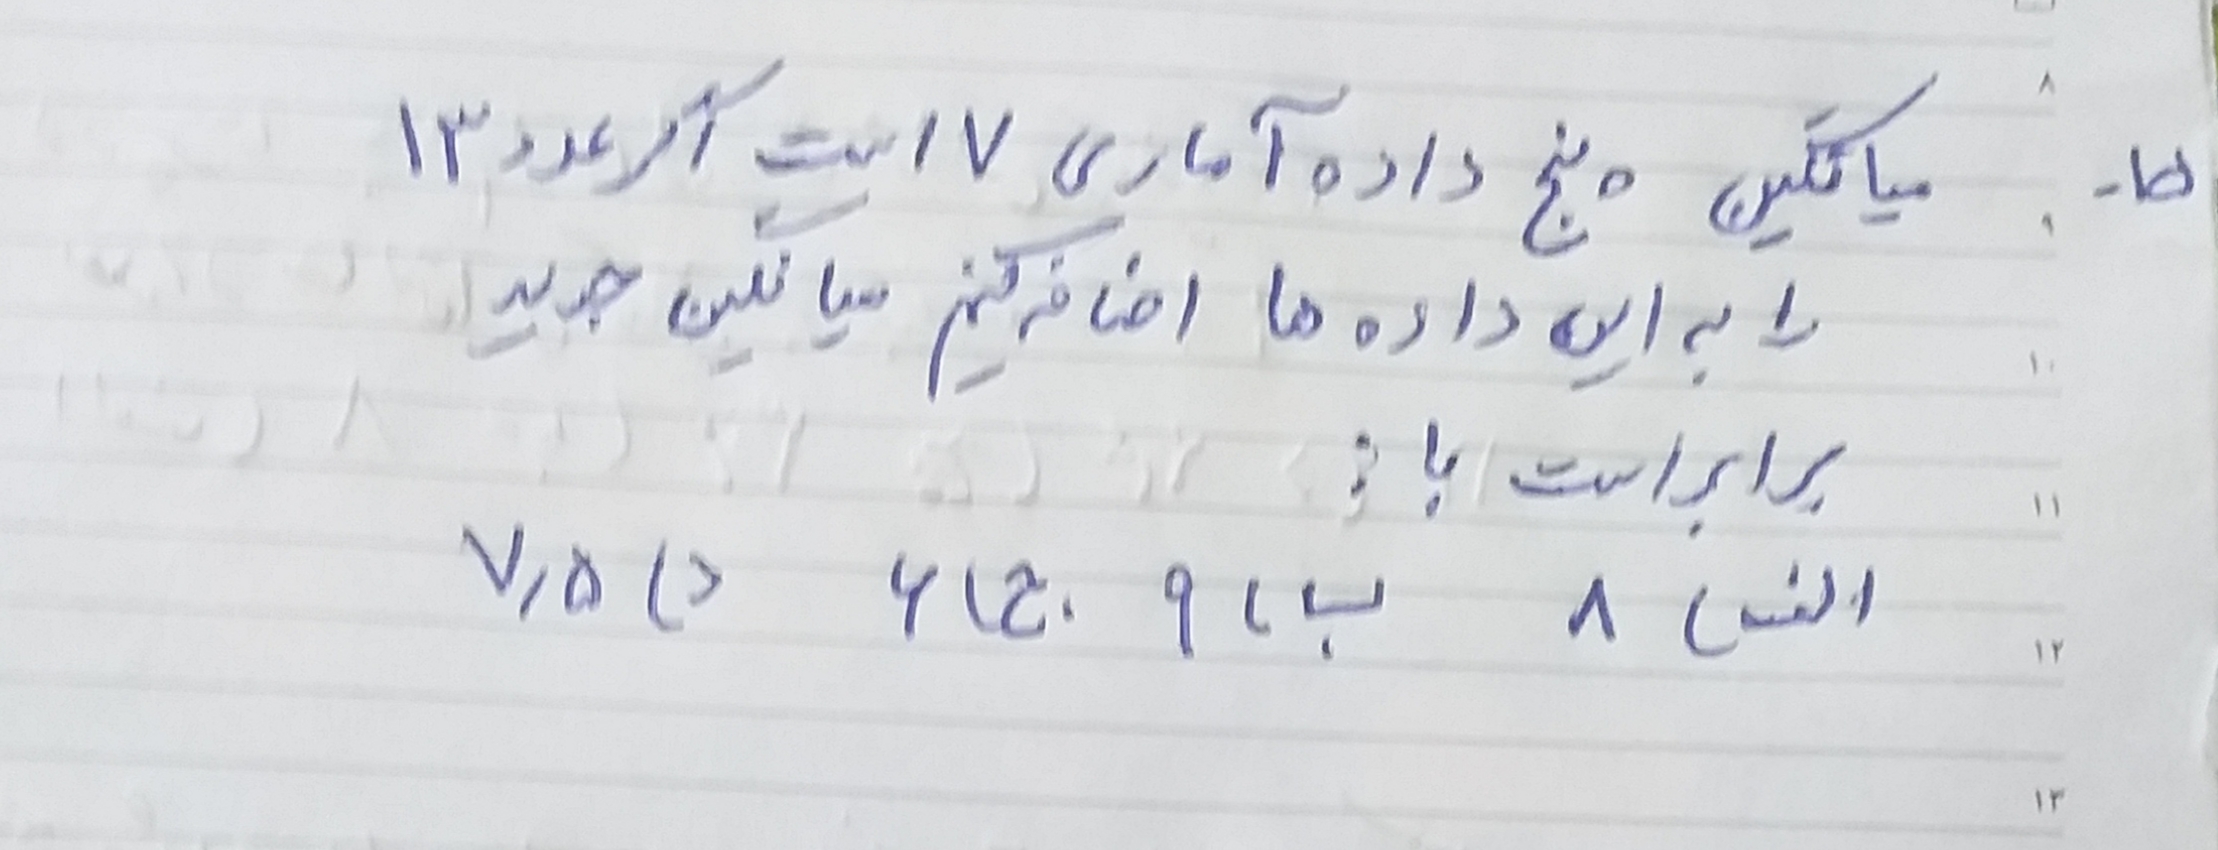 ۸
ط- میانگین پنج داده آماری ۷ است اگر عدد ۱۳
۹
را به این داده ها اضافه کنیم میانگین جدید
۱۰
برابر است با :
۱۱
الف) ۸ ب) ۹ ج) ۶ د) ۷,۵
۱۲
۱۳